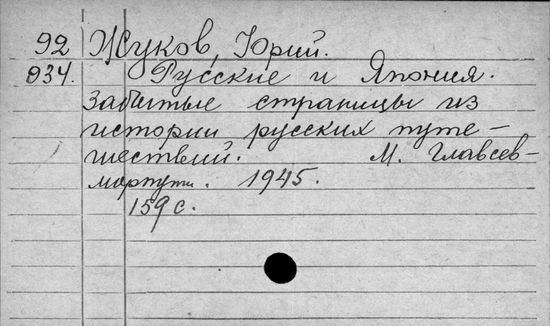 92 Жуков, Юрий.
934. Русские и Япония.
Забытые страницы из
истории русских путе-
шествий. М. Главсев-
морпути. 1945.
159 с.